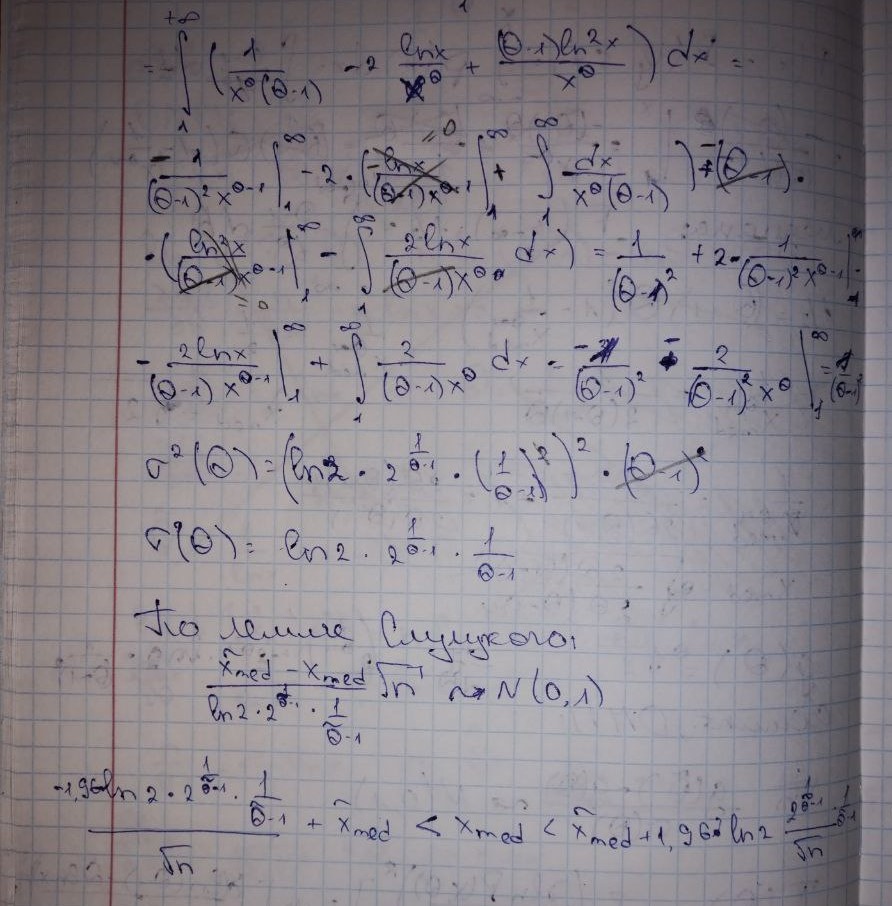 = ∫₁^{+∞} ( 1/(x^θ(θ-1)) - 2 lnx/x^θ + (θ-1)ln²x/x^θ ) dx =
- 1/((θ-1)² x^{θ-1}) |₁^∞ - 2·( -lnx/((θ-1)x^{θ-1}) |₁^∞ + ∫₁^∞ dx/(x^θ(θ-1)) ) - (θ-1)·
=0
·( ln²x/((θ-1)x^{θ-1}) |₁^∞ - ∫₁^∞ 2lnx/((θ-1)x^θ) dx ) = 1/(θ-1)² + 2·1/((θ-1)² x^{θ-1}) |₁^∞ -
=0
- 2lnx/((θ-1) x^{θ-1}) |₁^∞ + ∫₁^∞ 2/((θ-1)x^θ) dx = - 1/(θ-1)² - 2/((θ-1)² x^θ) |₁^∞ = 1/(θ-1)²
σ²(θ) = (ln2 · 2^{1/(θ-1)} · (1/(θ-1))²)² · (θ-1)²
σ(θ) = ln2 · 2^{1/(θ-1)} · 1/(θ-1)
По лемме Слуцкого:
(x̃med - xmed)/(ln2·2^{1/(θ̃-1)}·1/(θ̃-1)) √n ~ N(0,1)
-1,96 ln2·2^{1/(θ̃-1)}·1/(θ̃-1)/√n + x̃med < xmed < x̃med + 1,96·ln2 2^{1/(θ̃-1)}·1/(θ̃-1)/√n